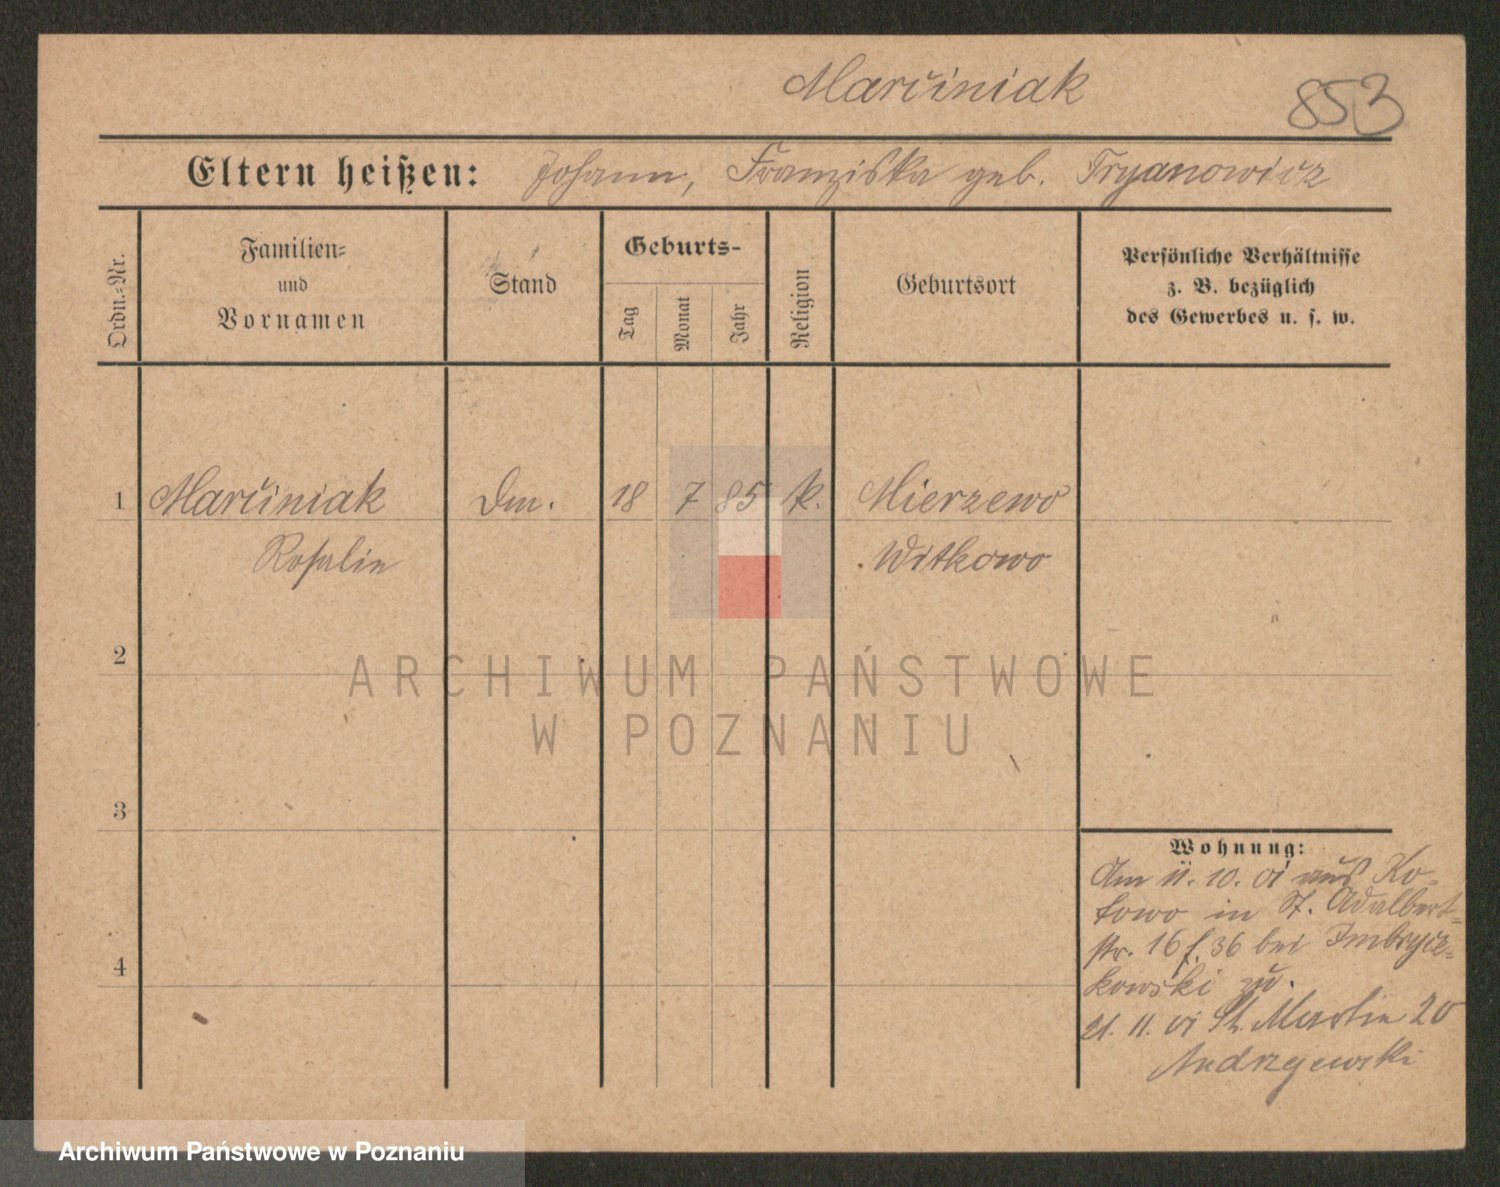 Marciniak
853
Eltern heißen: Johann, Franziska geb. Tryanowicz
Ordn.-Nr.
Familien-
und
Vornamen
Stand
Geburts-
Tag
Monat
Jahr
Religion
Geburtsort
Persönliche Verhältnisse
z. B. bezüglich
des Gewerbes u. s. w.
1 Marciniak Dm. 18 7 85 k. Mierzewo
Rosalie Witkowo
2
3
4
Wohnung:
Am 11. 10. 01 aus Ko-
towo in St. Adalbert-
str. 16 f. 36 bei Imbrycz-
kowski zu.
21. 11. 01 St. Martin 20
Andrzejewski
ARCHIWUM PAŃSTWOWE
W POZNANIU
Archiwum Państwowe w Poznaniu